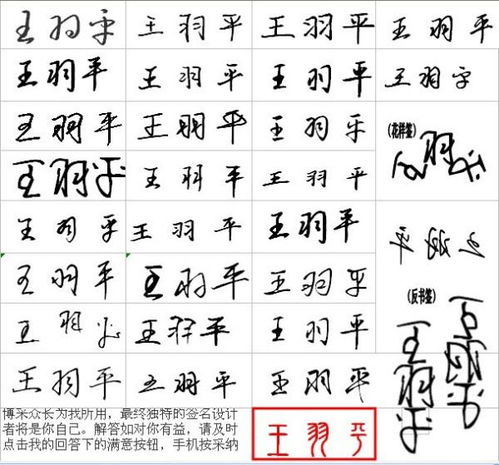 王羽平 王羽平 王羽平 王羽平
王羽平 王羽平 王羽平 王羽平
王羽平 王羽平 王羽平
(花样签)
王羽平
王羽平 王羽平 王羽平
王羽平 王羽平 王羽平
王羽平
王羽平 王羽平 王羽平
(反书签)
王羽平 王羽平 王羽平
王羽平 王羽平 王羽平
博采众长为我所用，最终独特的签名设计
者将是你自己。解答如对你有益，请及时
点击我的回答下的满意按钮，手机按采纳
王羽平